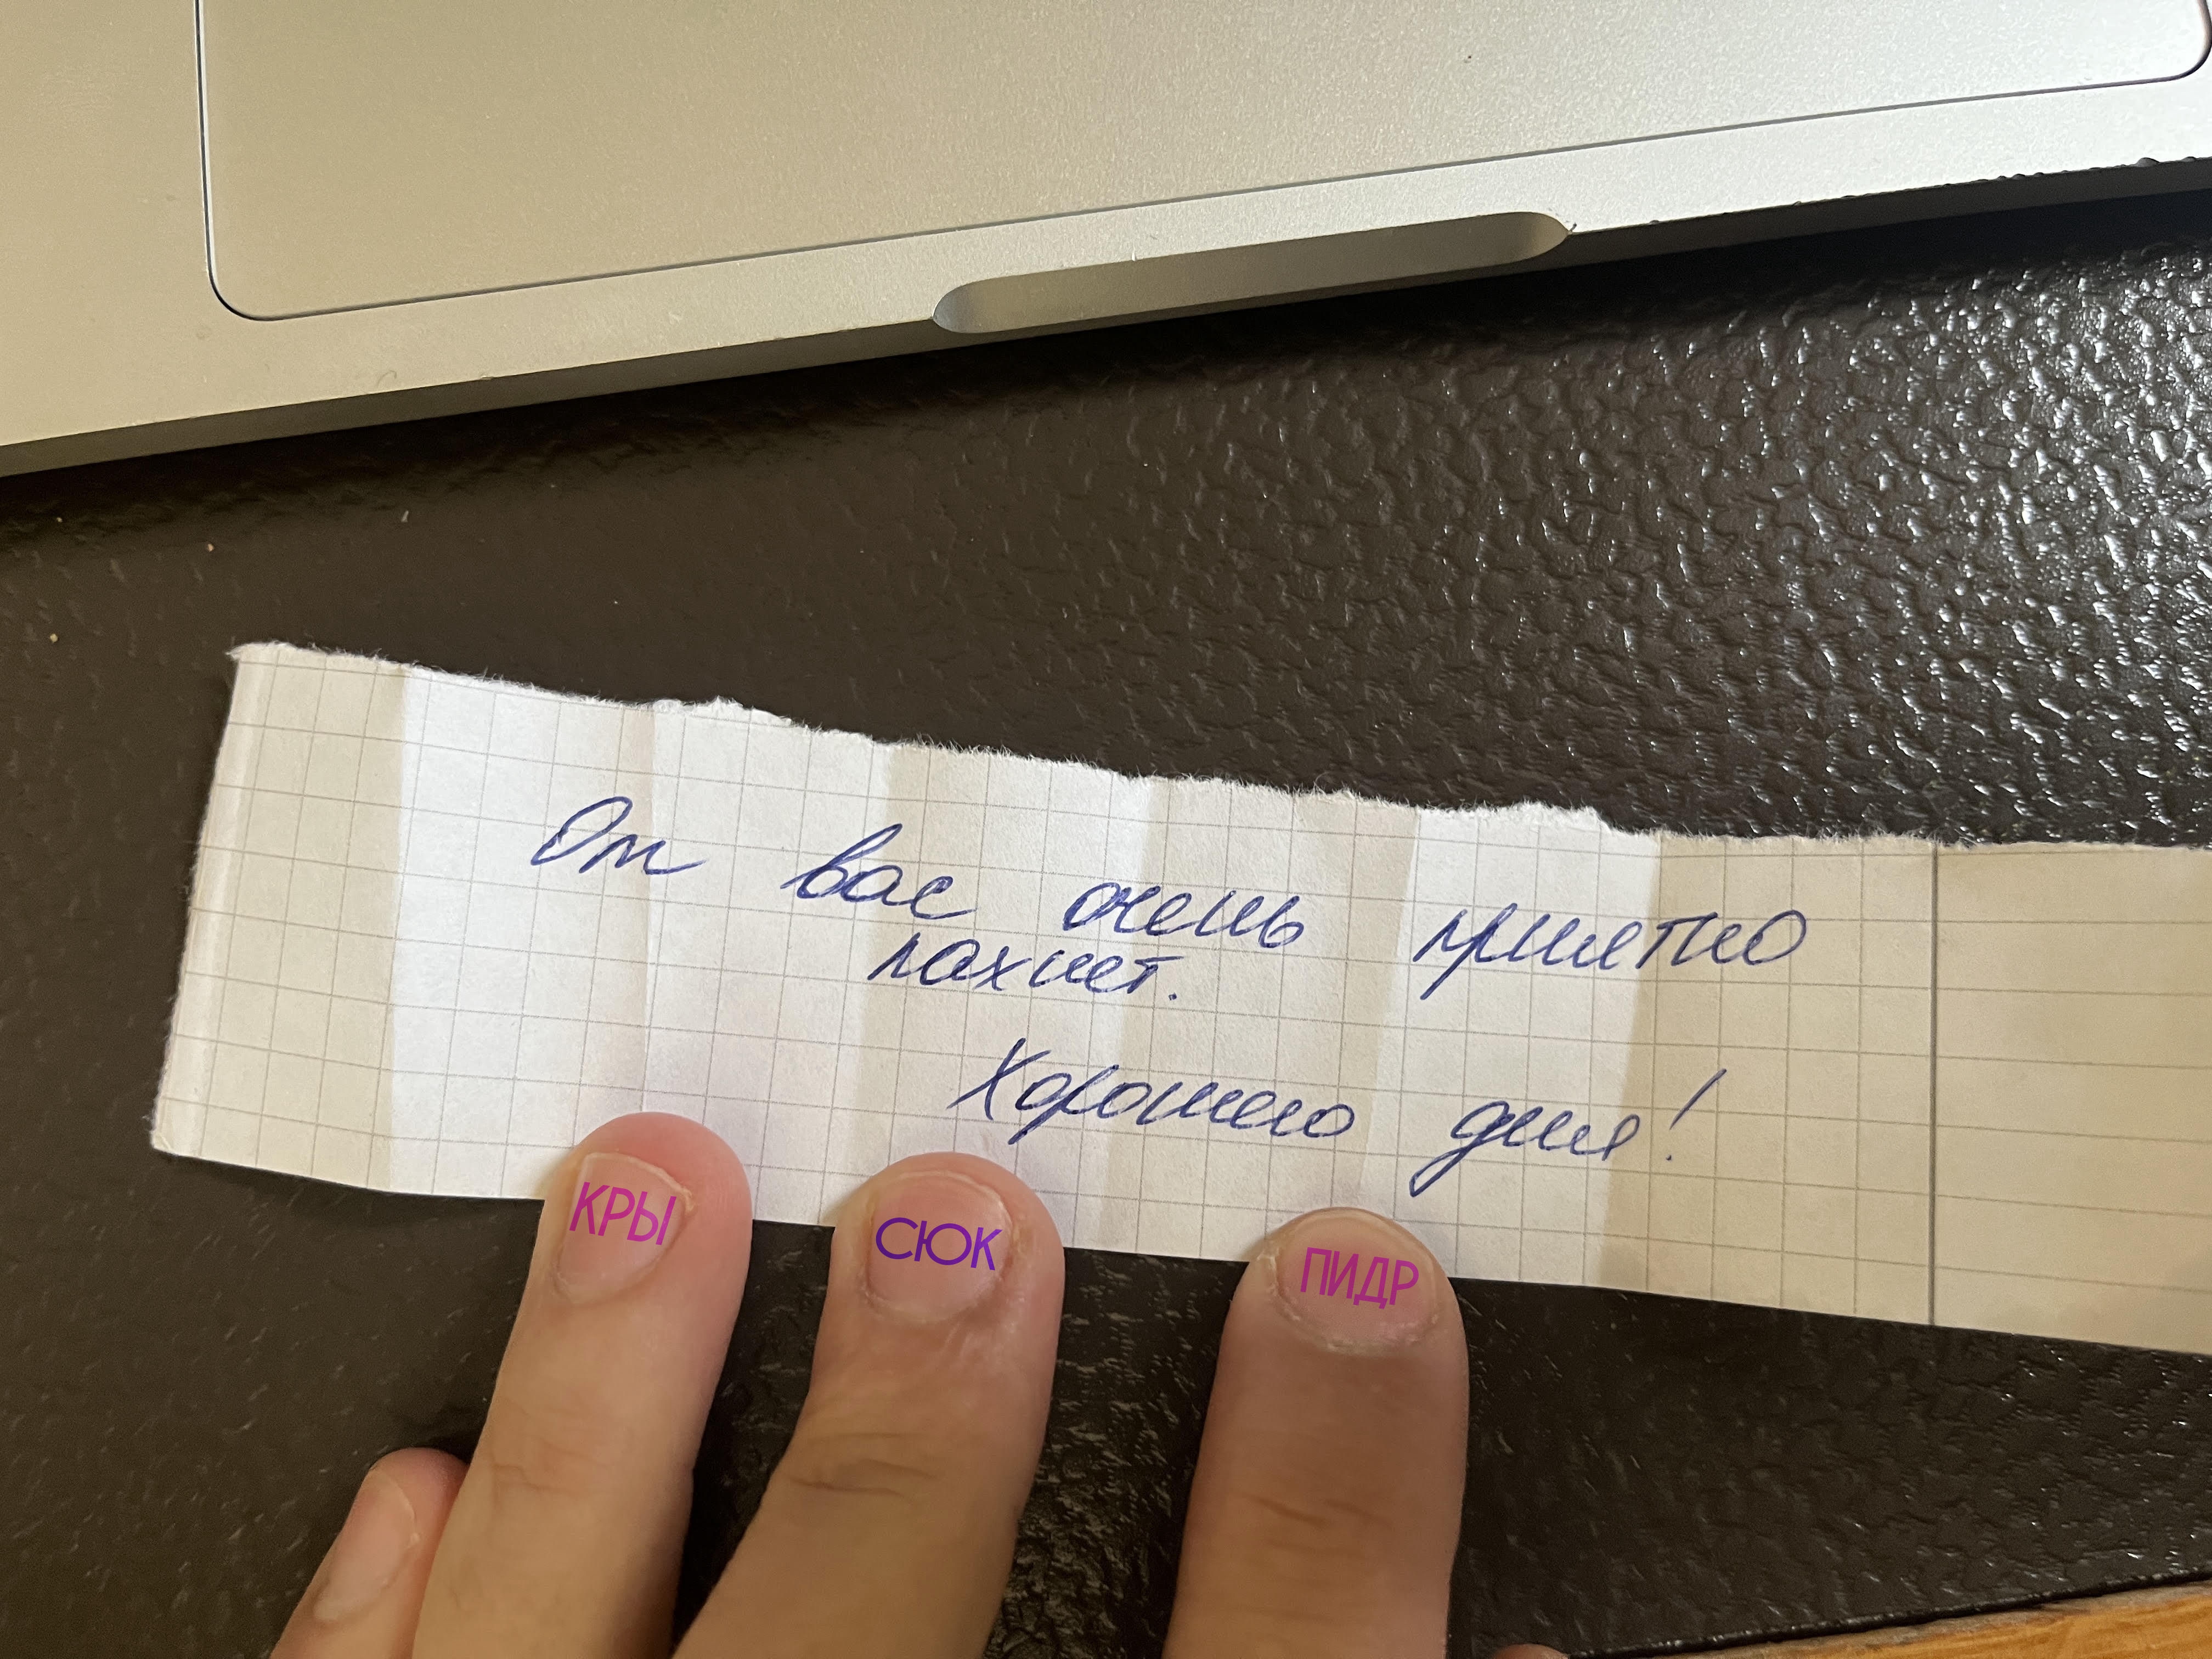 От вас очень приятно
пахнет.
Хорошего дня!
КРЫ
СЮК
ПИДР